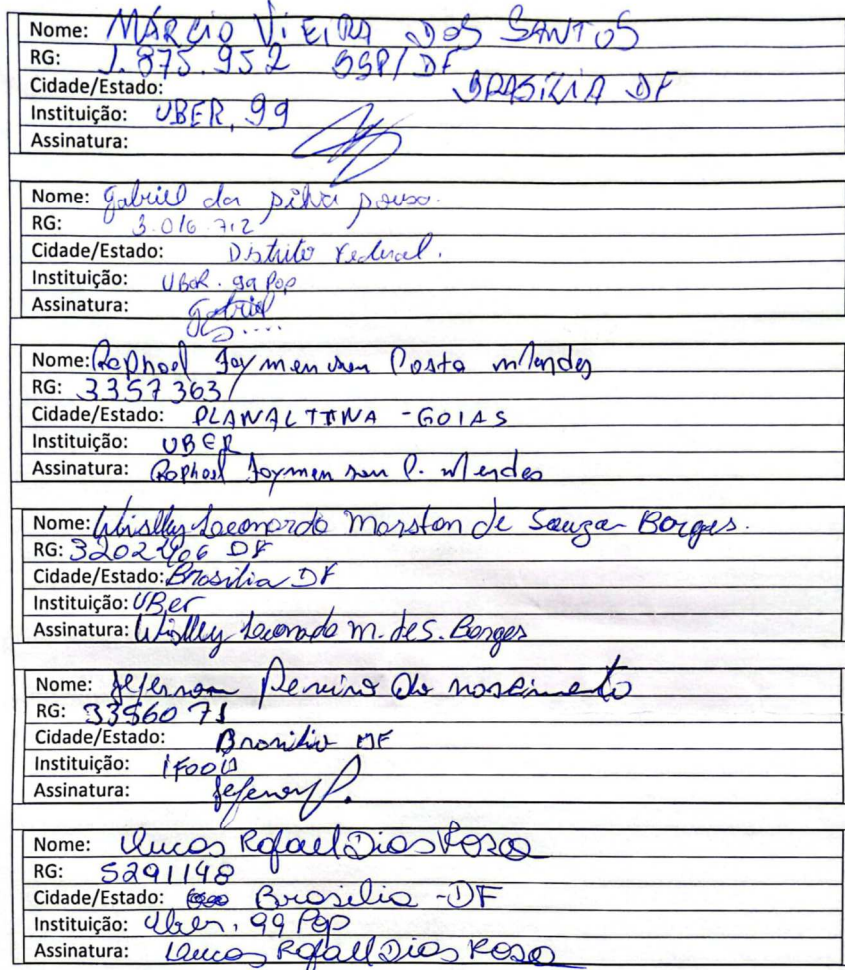 Nome: MÁRCIO VIEIRA DOS SANTOS
RG: 1.875.952 SSP/DF
Cidade/Estado: BRASÍLIA DF
Instituição: UBER, 99
Assinatura:
Nome: Gabriel da silva sousa.
RG: 3.016.712
Cidade/Estado: Distrito Federal.
Instituição: UBER. 99 POP
Assinatura: Gabriel
Nome: Raphael Costa Mendes
RG: 3357363
Cidade/Estado: PLANALTINA - GOIAS
Instituição: UBER
Assinatura: Raphael C. Mendes
Nome: Leonardo Marston de Souza Borges.
RG: DF
Cidade/Estado: Brasilia DF
Instituição: UBer
Assinatura: Leonardo m. de S. Borges
Nome: Jeferson do nascimento
RG: 3356071
Cidade/Estado: Brasilia DF
Instituição: IFOOD
Assinatura:
Nome: Lucas Rafael Dias Rosa
RG: 5291148
Cidade/Estado: Brasilia - DF
Instituição: Uber, 99 Pop
Assinatura: Lucas Rafael Dias Rosa